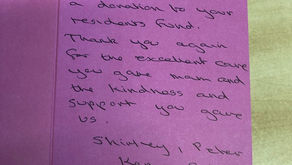 a donation to your
residents fund.
Thank you again
for the excellent care
you gave mum and
the kindness and
support you gave
us.
Shirley, Peter